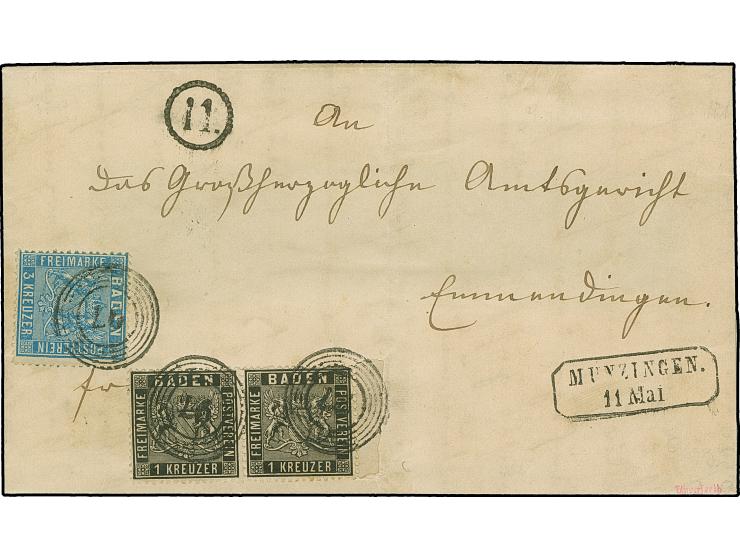 11.
An
das Großherzogliche Amtsgericht
Emmendingen.
FREIMARKE
BADEN
3 KREUZER
POSTVEREIN
MUNZINGEN.
11 Mai
fr
BADEN
FREIMARKE
POSTVEREIN
1 KREUZER
BADEN
FREIMARKE
POSTVEREIN
1 KREUZER